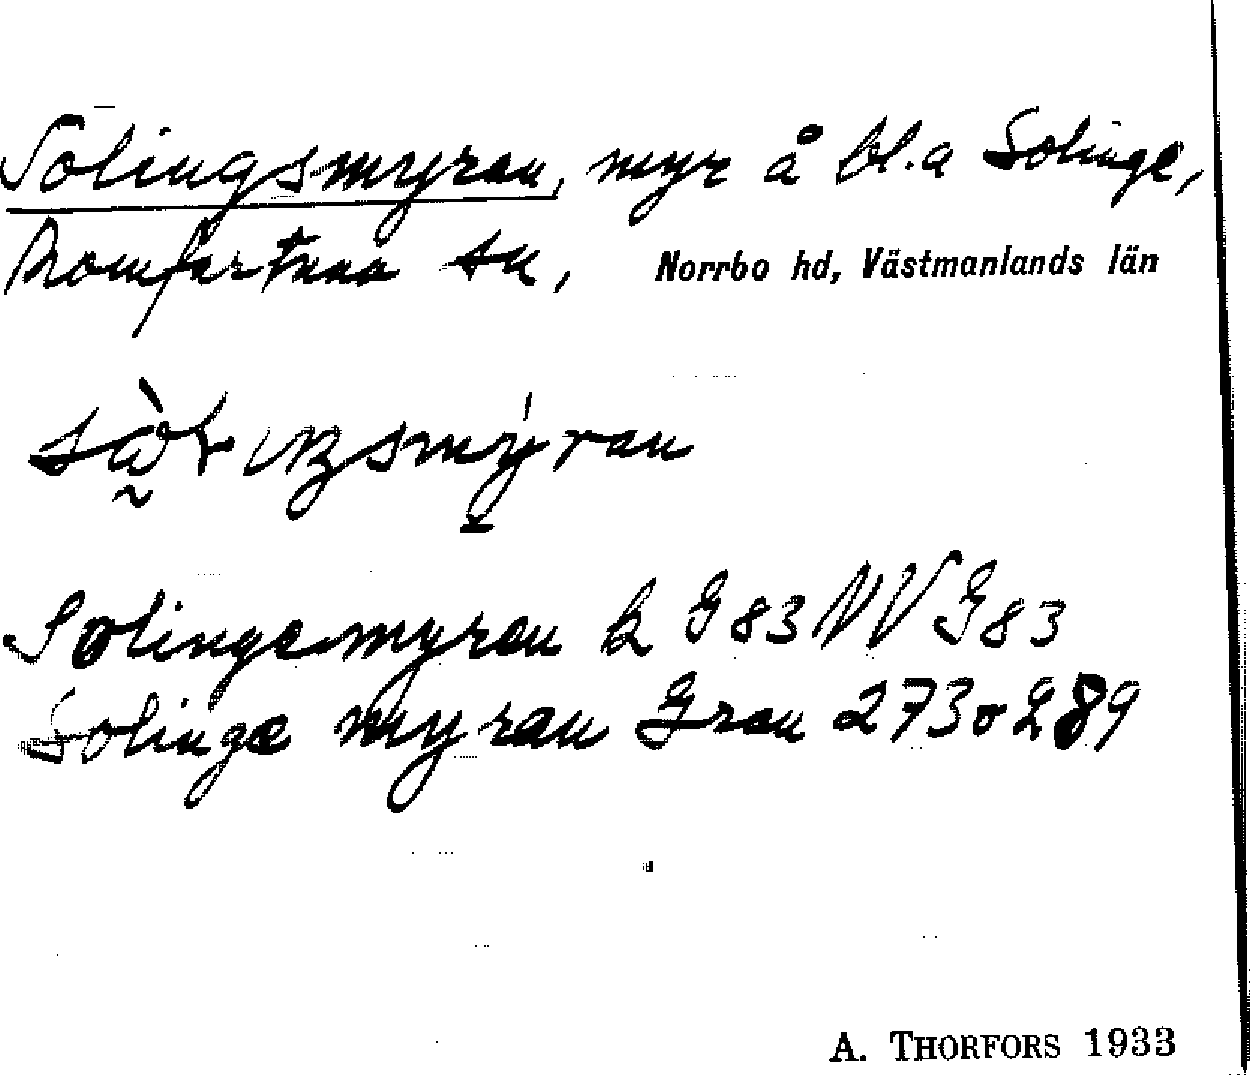 Solingsmyran, myr å bl.a Solinge,
Romfartuna sn, Norrbo hd, Västmanlands län
Solingemyran k G 83 NV G 83
Solinge myran Gran 273 o 289
A. THORFORS 1933